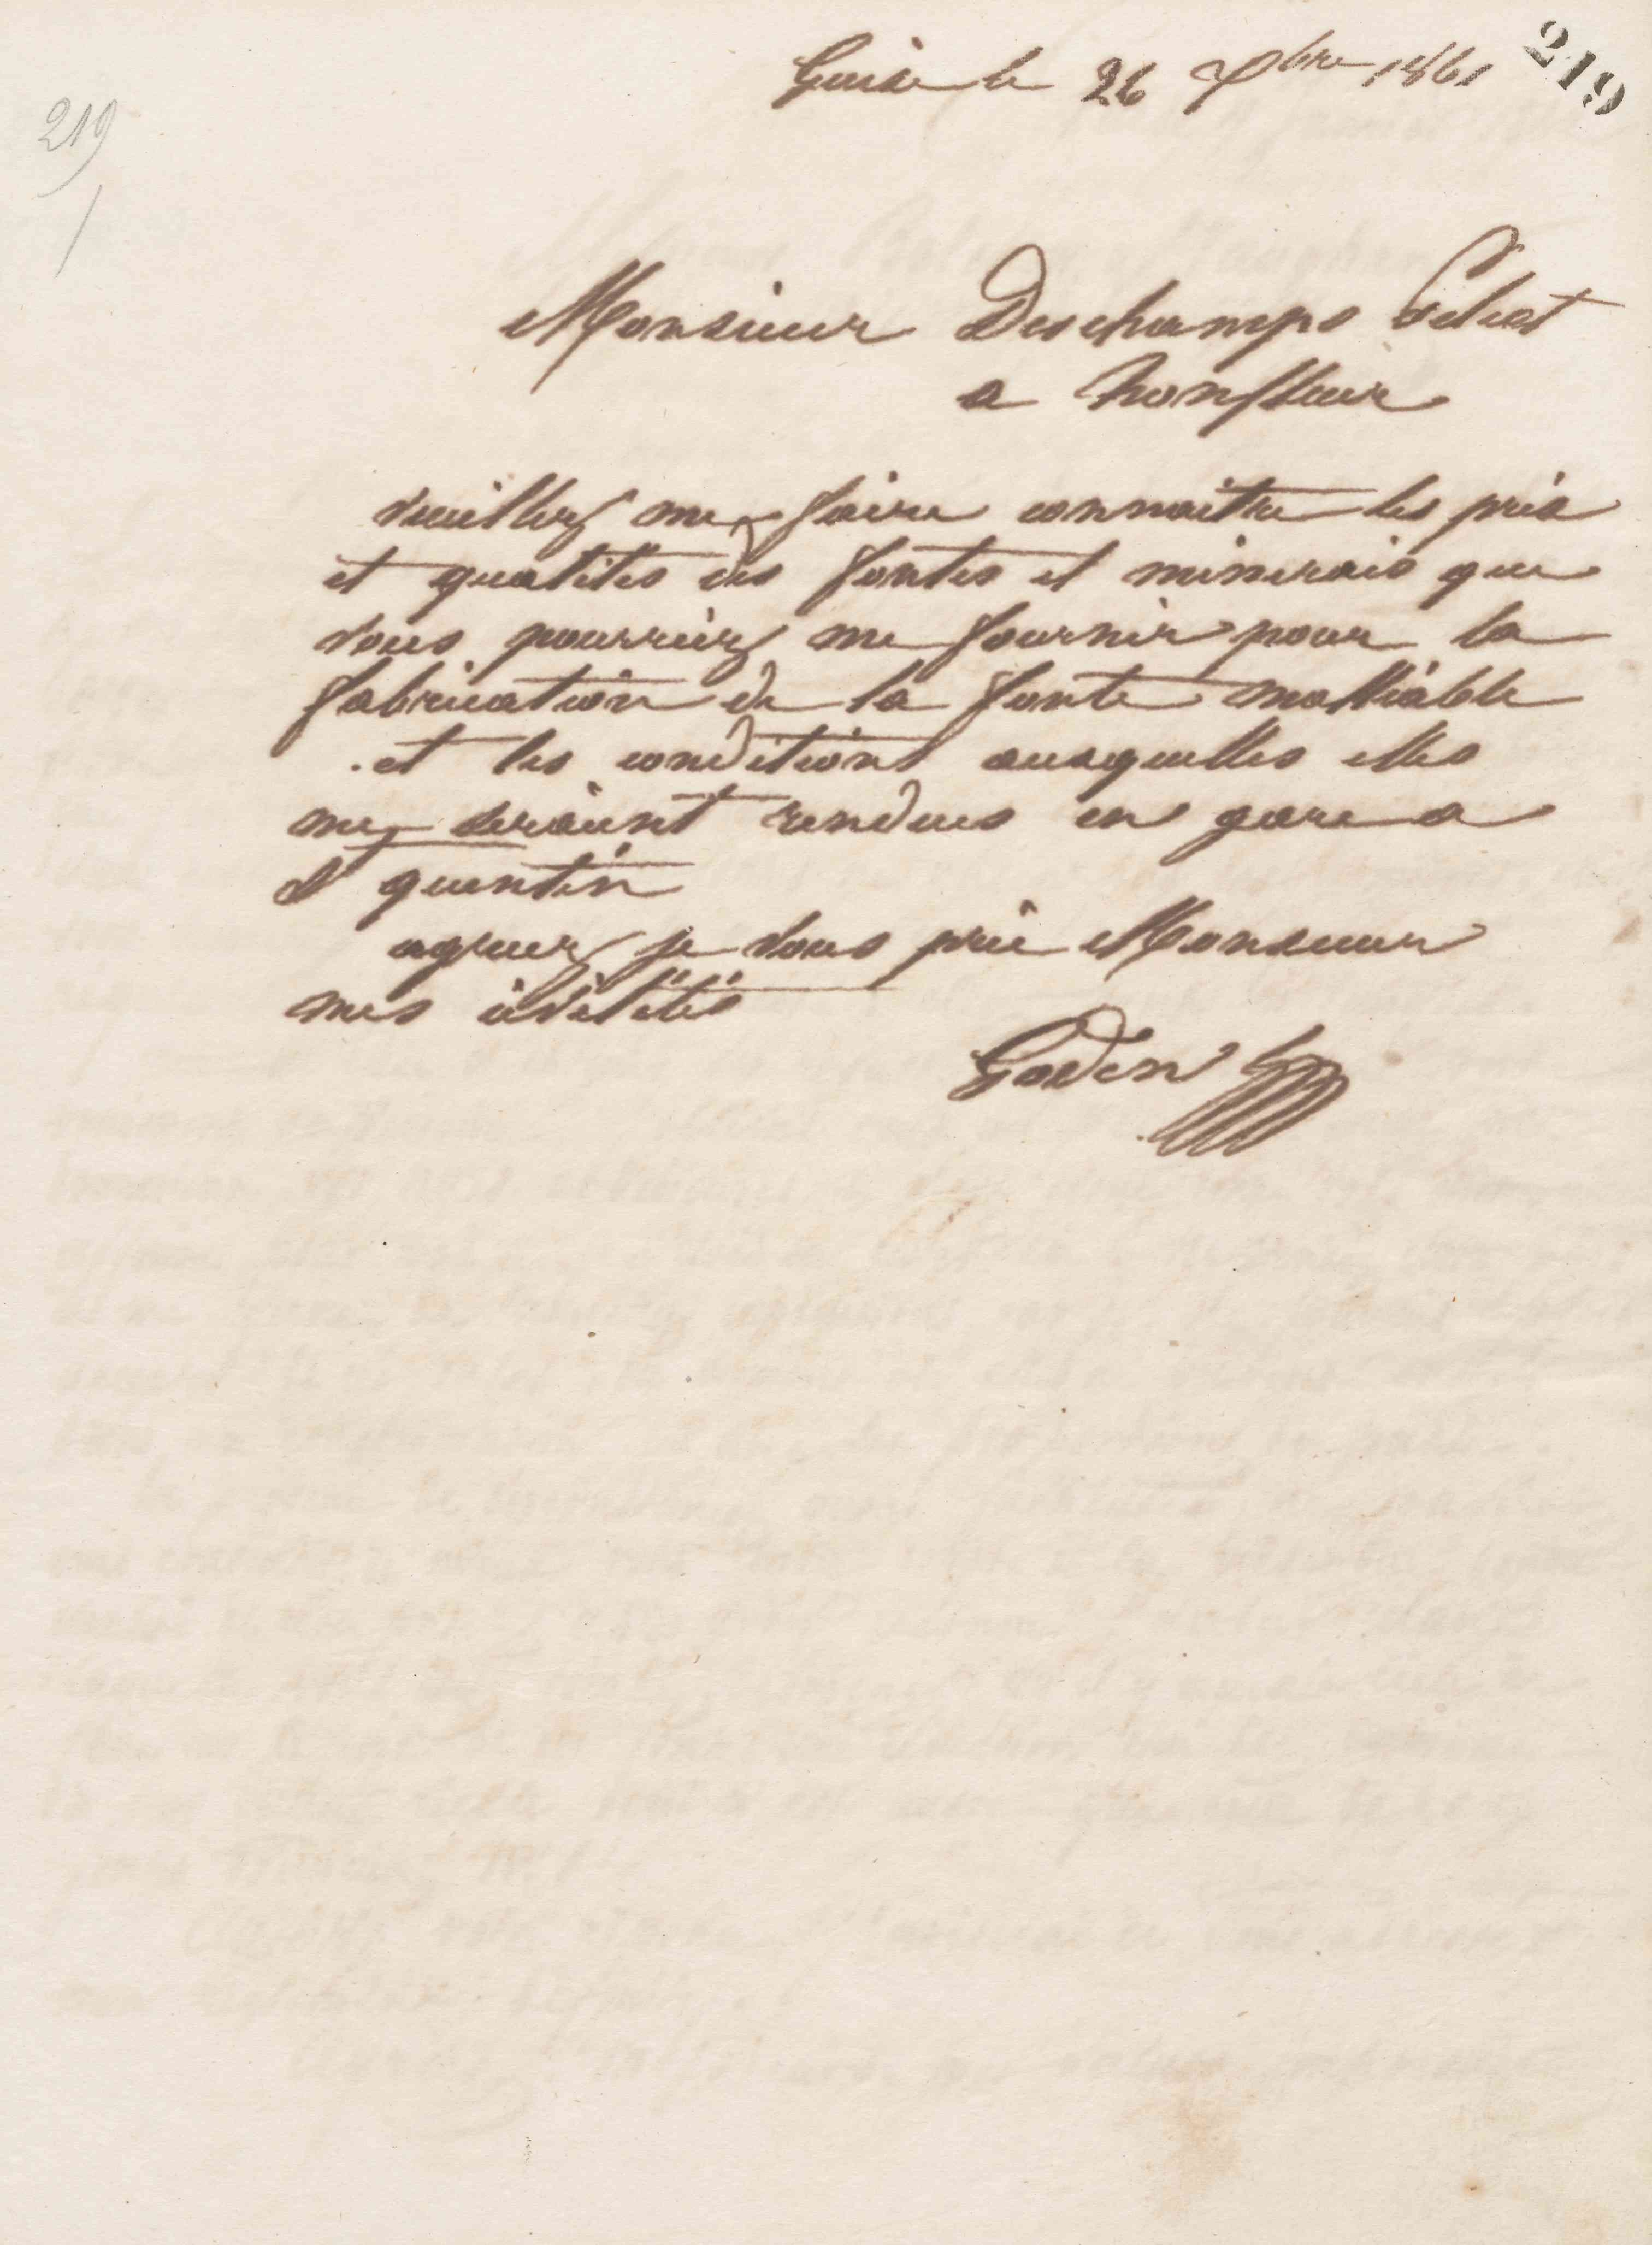 Guise le 26 Xbre 1861
219
219
Monsieur Deschamps
a honfleur
veuillez me faire connaitre les prix
et qualités des fontes et minerais que
vous pourriez me fournir pour la
fabrication de la fonte malléable
et les conditions auxquelles elles
me seraient rendues en gare a
St quentin
agreez je vous prie Monsieur
mes civilités
Godin